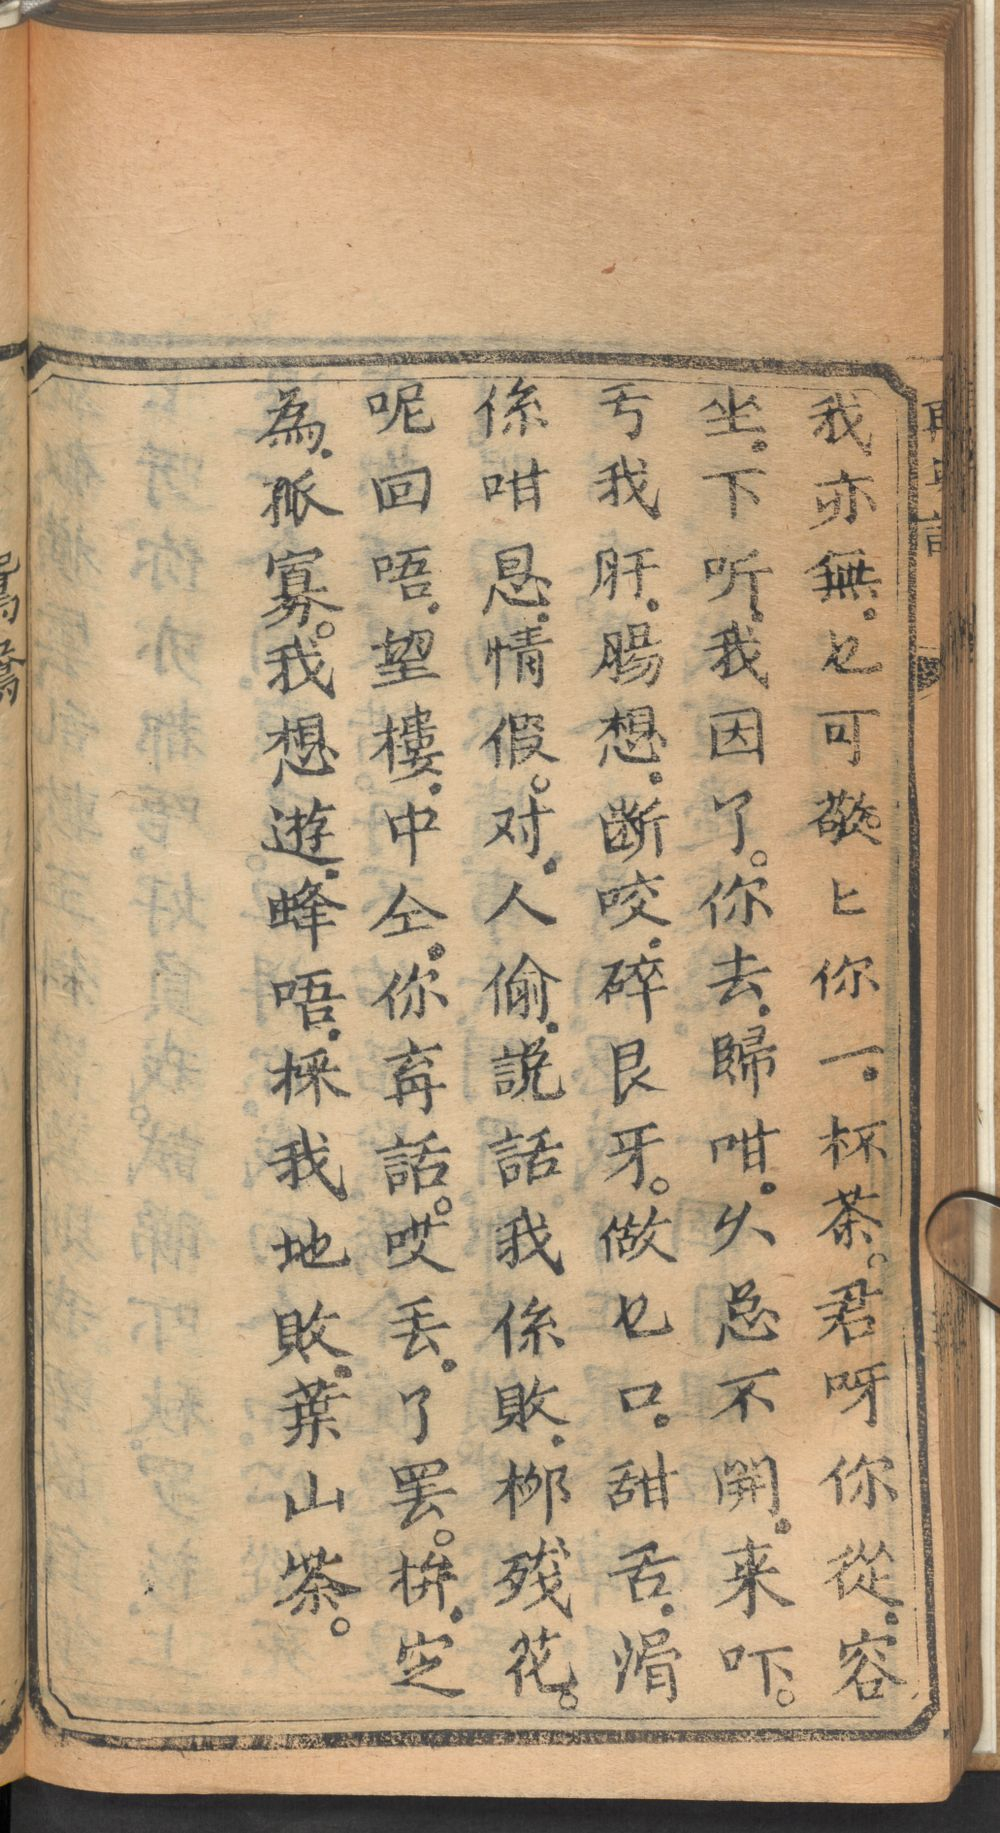 我亦無.乜可敬。匕你一.杯茶。君呀你從.容
坐.下听.我因了。你去.歸咁.久忌不開.来吓。
亐我肝.腸想.断咬.碎艮牙。做乜口.甜舌.滑
係咁恳.情假。对.人偷.說話我係敗.柳残花。
呢回唔.望樓.中仝.你再話。哎丟.了罢。拚.定
為.孤寡。我想遊.蜂唔.採我地敗.葉山茶。